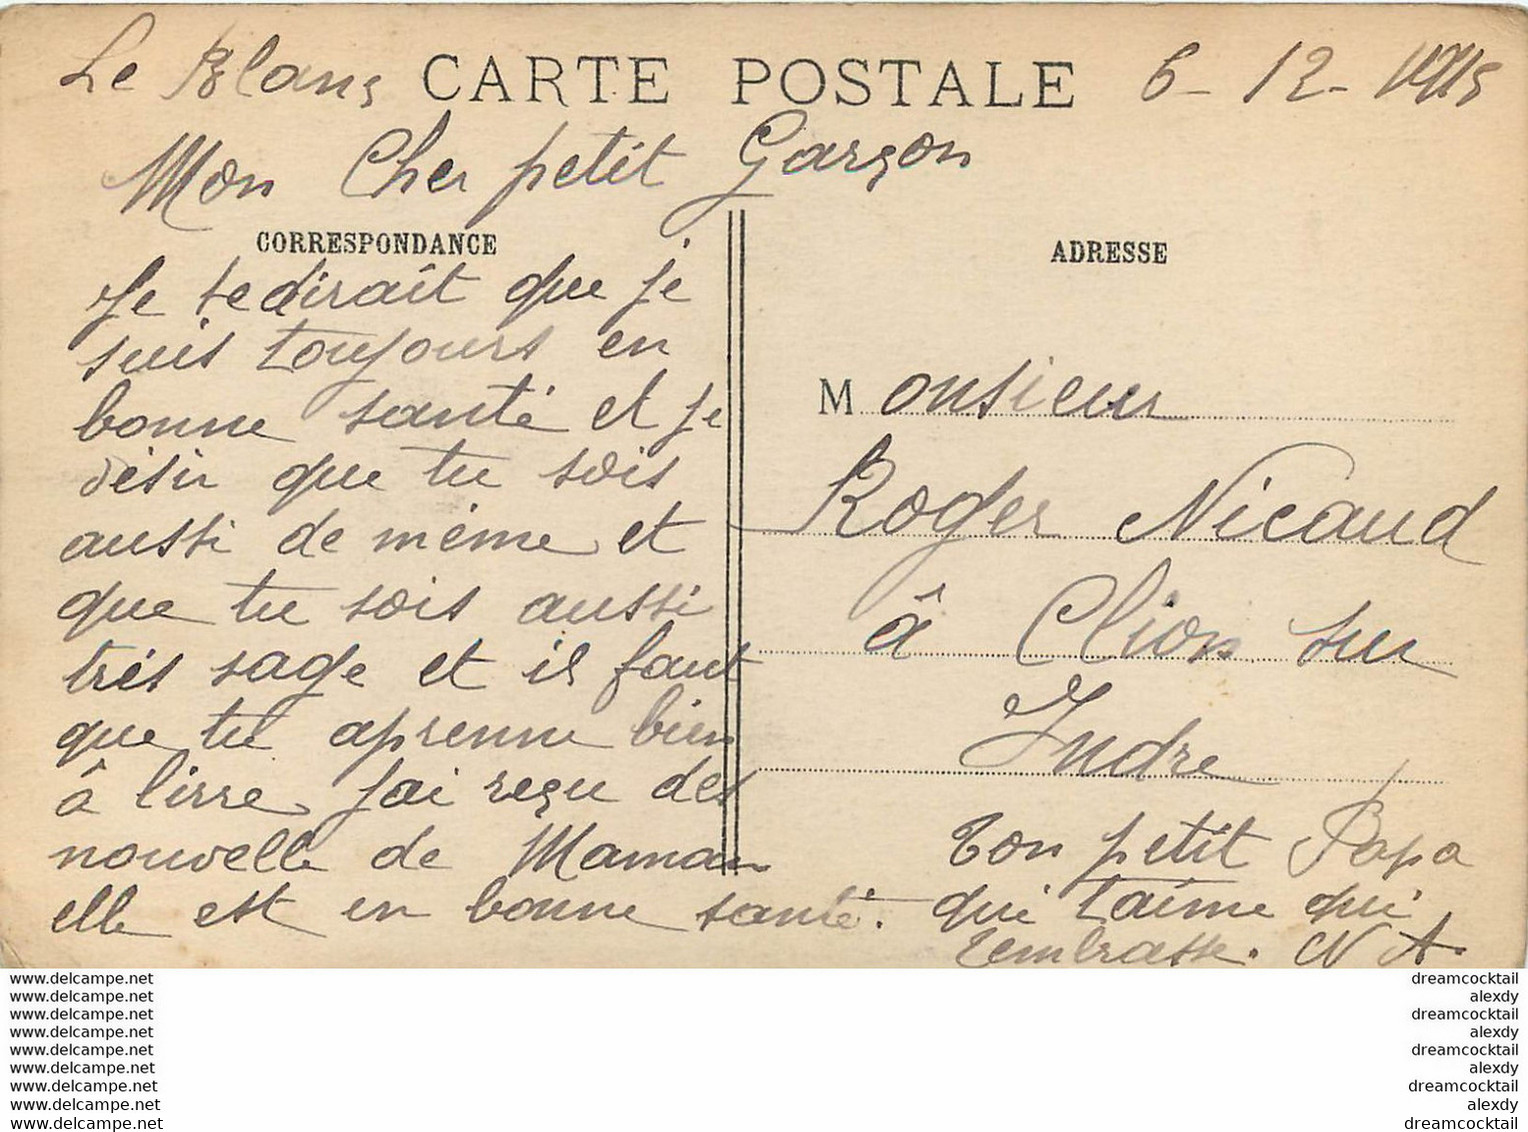 Le Blanc CARTE POSTALE 6 - 12 - 1915
Mon Cher petit Garçon
CORRESPONDANCE
Je te dirait que je
suis toujours en
bonne santé et je
désir que tu sois
aussi de même et
que tu sois aussi
très sage et il faut
que tu aprenne bien
à lirre j'ai reçu des
nouvelle de Maman
elle est en bonne santé.
ADRESSE
Monsieur
Roger Nicaud
à Clion sur
Indre
Ton petit Papa
qui t'aime qui
t'embrasse. N A.
www.delcampe.net
www.delcampe.net
www.delcampe.net
www.delcampe.net
www.delcampe.net
www.delcampe.net
www.delcampe.net
www.delcampe.net
www.delcampe.net
dreamcocktail
alexdy
dreamcocktail
alexdy
dreamcocktail
alexdy
dreamcocktail
alexdy
dreamcocktail